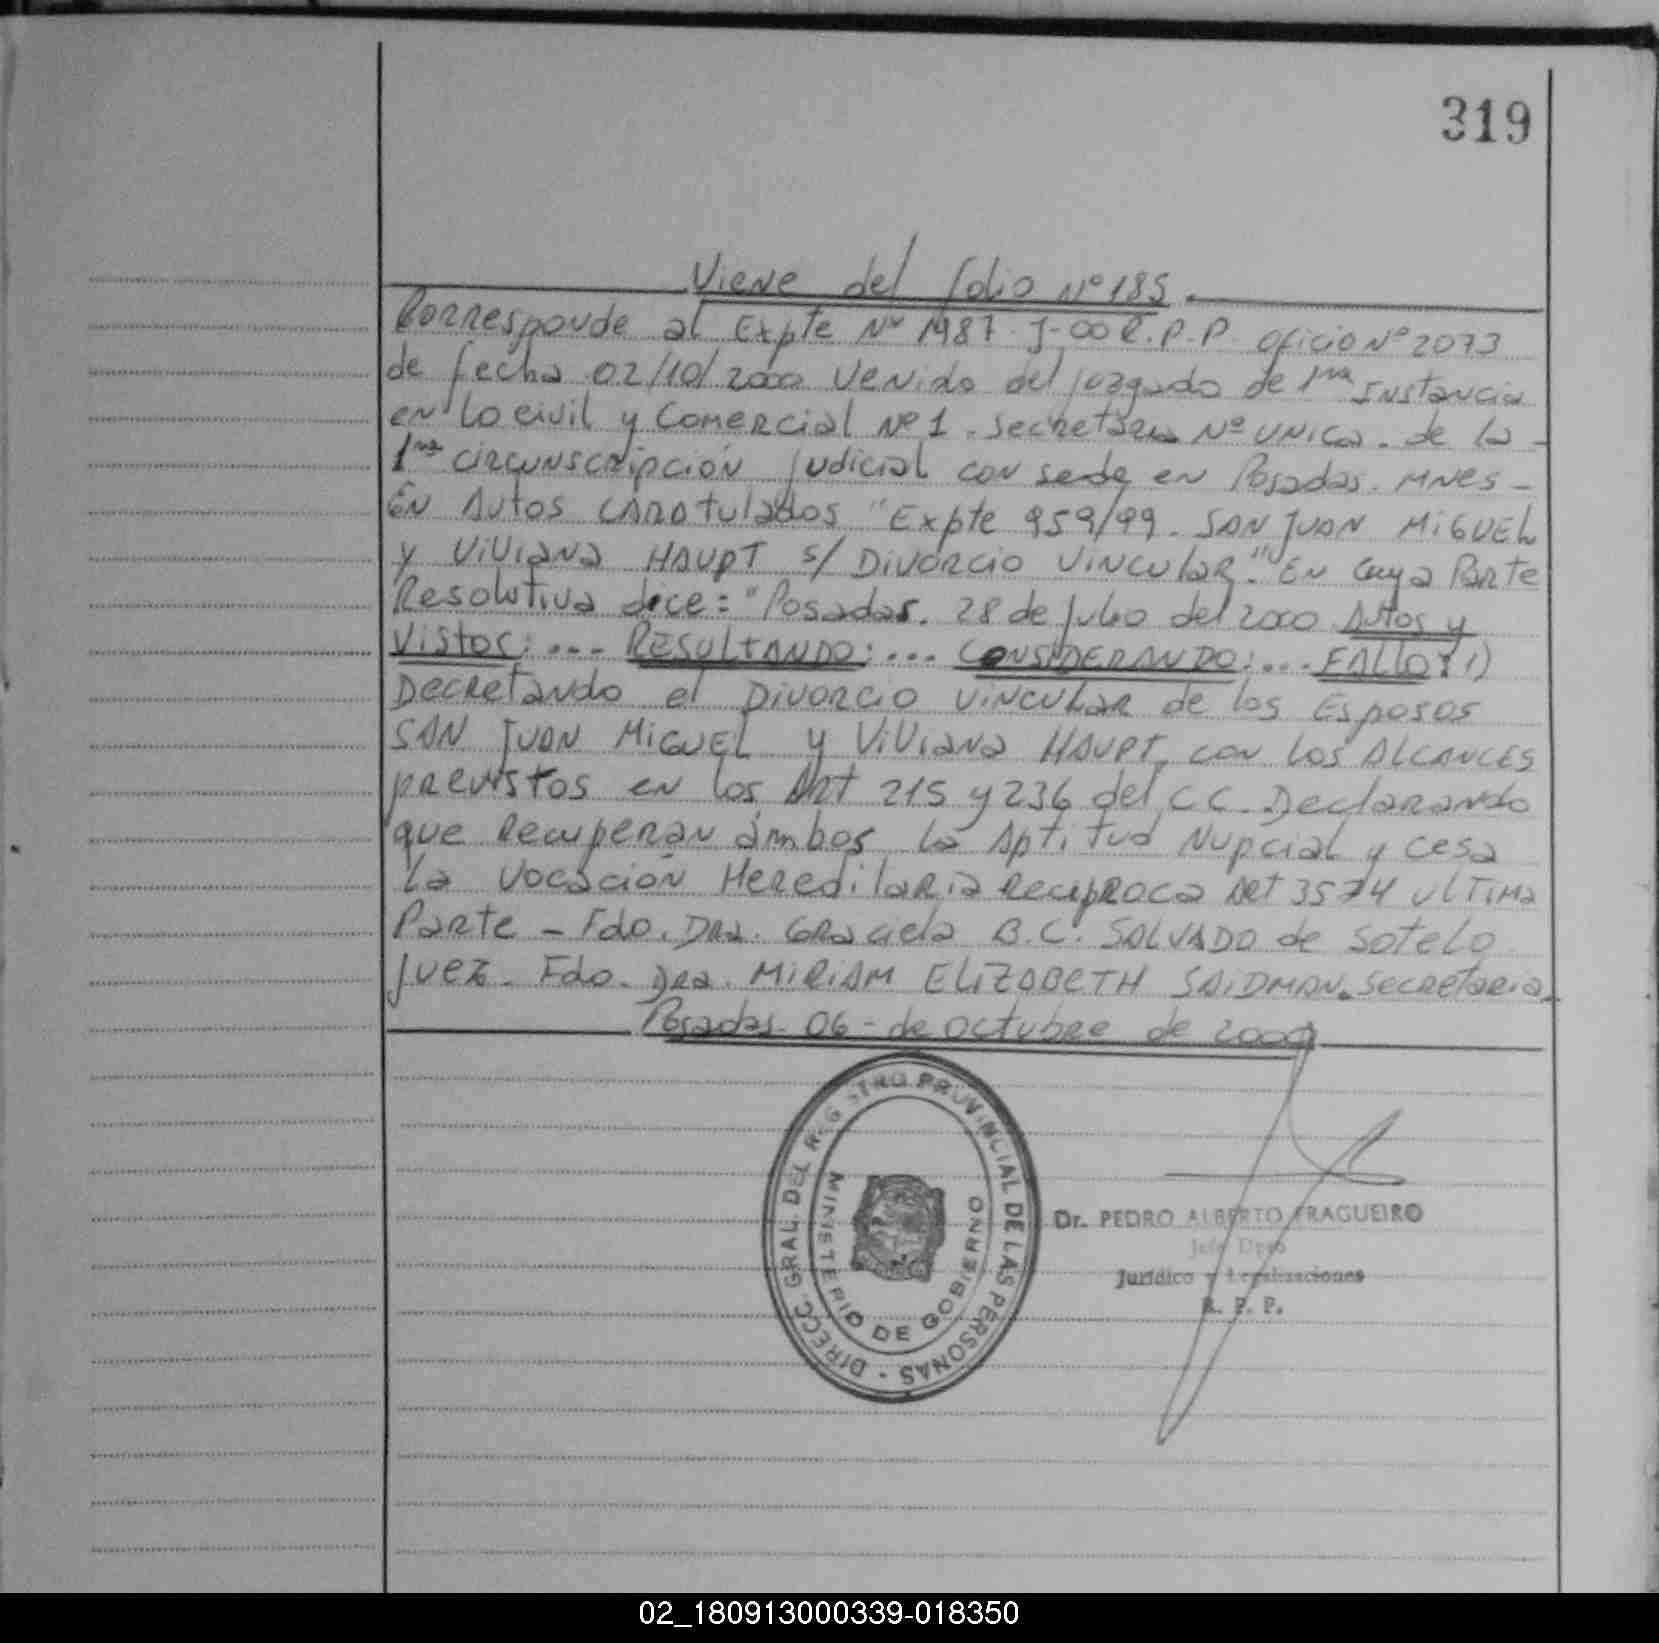 319
Viene del folio Nº 185.
Corresponde al Expte Nº 1987-J-00 R.P.P. oficio Nº 2073
de fecha 02/10/2000 Venido del juzgado de 1ra Instancia
en lo civil y Comercial Nº 1. Secretaria Nº UNICA. de la -
1ra circunscripción judicial con sede en Posadas. MNES -
EN Autos CARATulados "Expte 959/99. SAN JUAN MIGUEL
y ViViana HAUPT s/ DIVORCIO VINCULAR." EN cuya Parte
Resolutiva dice: "Posadas. 28 de julio del 2000 Autos y
VISTOS: ... RESULTANDO: ... CONSIDERANDO: ... FALLO: 1)
DECRETANDO el DIVORCIO VINCULAR de los Esposos
SAN JUAN MIGUEL y ViViana HAUPT, con los ALCANCES
previstos en los Art 215 y 236 del C C. Declarando
que Recuperan ámbos la Aptitud Nupcial y cesa
La Vocación Hereditaria Reciproca Art 3574 ULTIMA
Parte - Fdo. Dra. Graciela B.C. SALVADO de Sotelo
Juez. Fdo. Dra. MIRIAM ELIZABETH SAIDMAN. Secretaria.
Posadas. 06 - de Octubre de 2000
DIRECC. GRAL. DEL REGISTRO PROVINCIAL DE LAS PERSONAS -
MINISTERIO DE GOBIERNO
Dr. PEDRO ALBERTO FRAGUEIRO
Jefe Dpto
Jurídico y Legalizaciones
R. P. P.
02_180913000339-018350